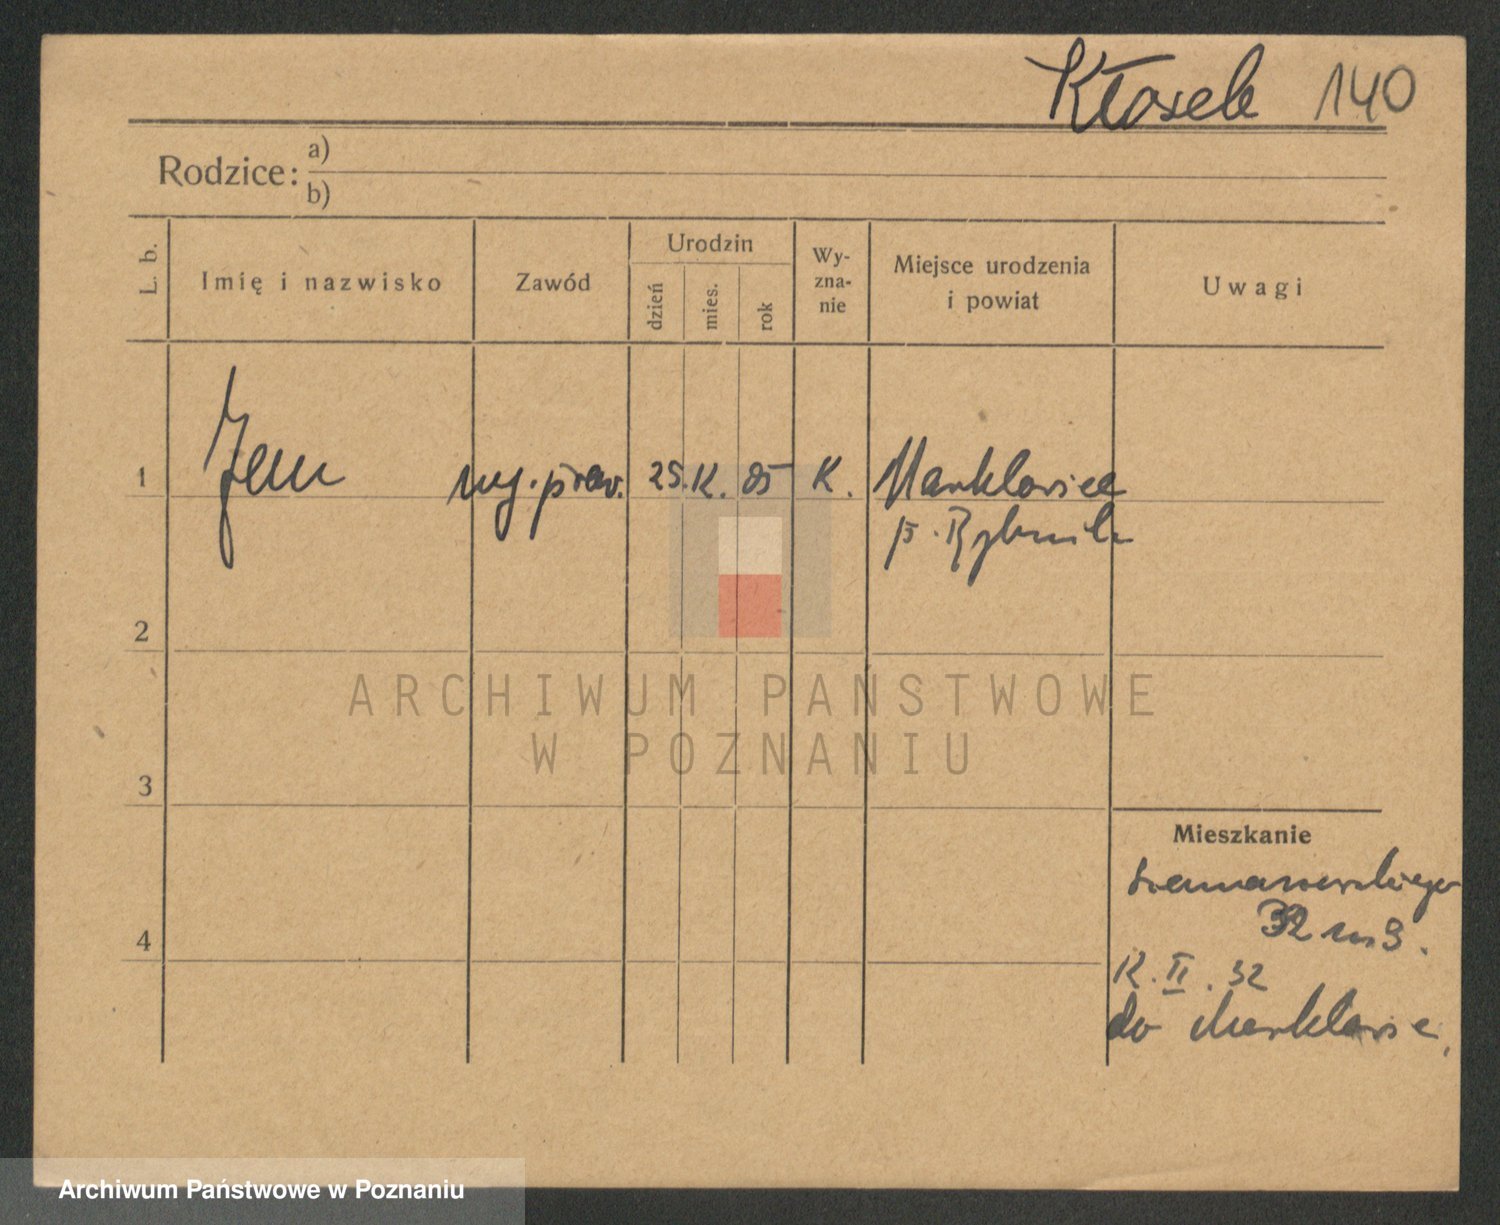 Kłosek 140
Rodzice: a)
b)
L. b.
Imię i nazwisko
Zawód
Urodzin
dzień
mies.
rok
Wy-
zna-
nie
Miejsce urodzenia
i powiat
Uwagi
1
Jan 25. 05 K. Marklowice
p. Rybnik
2
ARCHIWUM PAŃSTWOWE
W POZNANIU
3
Mieszkanie
4
32 m 3.
II. 32
do Marklowic
Archiwum Państwowe w Poznaniu